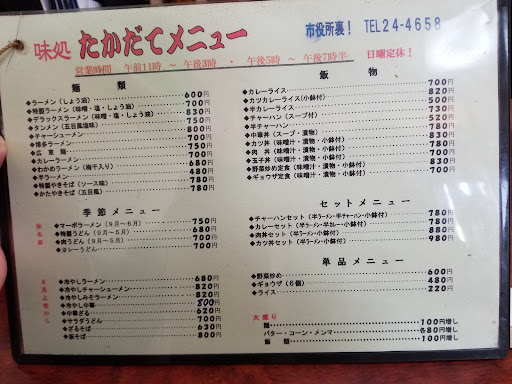 味処 たかだてメニュー
市役所裏! TEL24-4658
営業時間 午前11時 〜 午後3時 ・ 午後5時 〜 午後7時半 日曜定休!
麺 類
◆ラーメン(しょう油) 600円
◆特製ラーメン(味噌・塩・しょう油) 700円
◆デラックスラーメン(味噌・塩・しょう油) 830円
◆タンメン(五目風塩味) 750円
◆チャーシューメン
◆博多ラーメン 700円
◆広 東 麺
◆カレーラーメン 700円
◆わかめラーメン(梅干入り) 680円
◆半ラーメン 480円
◆特製やきそば(ソース味) 780円
◆かたやきそば(五目風) 780円
季節メニュー
秋冬春
◆マーボラーメン(9月〜6月) 750円
◆特製うどん(9月〜5月) 680円
◆肉うどん(9月〜5月) 700円
◆カレーうどん 700円
4月上旬から
◆冷やしラーメン 680円
◆冷やしチャーシューメン 820円
◆冷やしみそラーメン 820円
◆冷やし中華 800円
◆中華ざる 620円
◆サラダうどん 700円
◆ざるそば 630円
◆板そば 800円
飯 物
◆カレーライス 700円
◆カツカレーライス(小鉢付) 820円
◆半カレーライス(小鉢付) 500円
◆チャーハン(スープ付) 730円
◆半チャーハン(小鉢付)
◆中華丼(スープ・漬物)
◆カツ丼(味噌汁・漬物・小鉢付)
◆肉 丼(味噌汁・漬物・小鉢付)
◆玉子丼(味噌汁・漬物・小鉢付)
◆野菜炒め定食(味噌汁・漬物・小鉢付)
◆ギョウザ定食(味噌汁・漬物・小鉢付)
セットメニュー
◆チャーハンセット(半ラーメン・半チャーハン・小鉢付) 880円
◆カレーセット(半ラーメン・半カレー・小鉢付) 880円
◆肉丼セット(半ラーメン・小鉢付) 880円
◆カツ丼セット(半ラーメン・小鉢付) 980円
単品メニュー
◆野菜炒め 600円
◆ギョウザ(6個) 480円
◆ライス 220円
大盛り
麺 100円増し
バター・コーン・メンマ 各80円増し
飯 類 100円増し